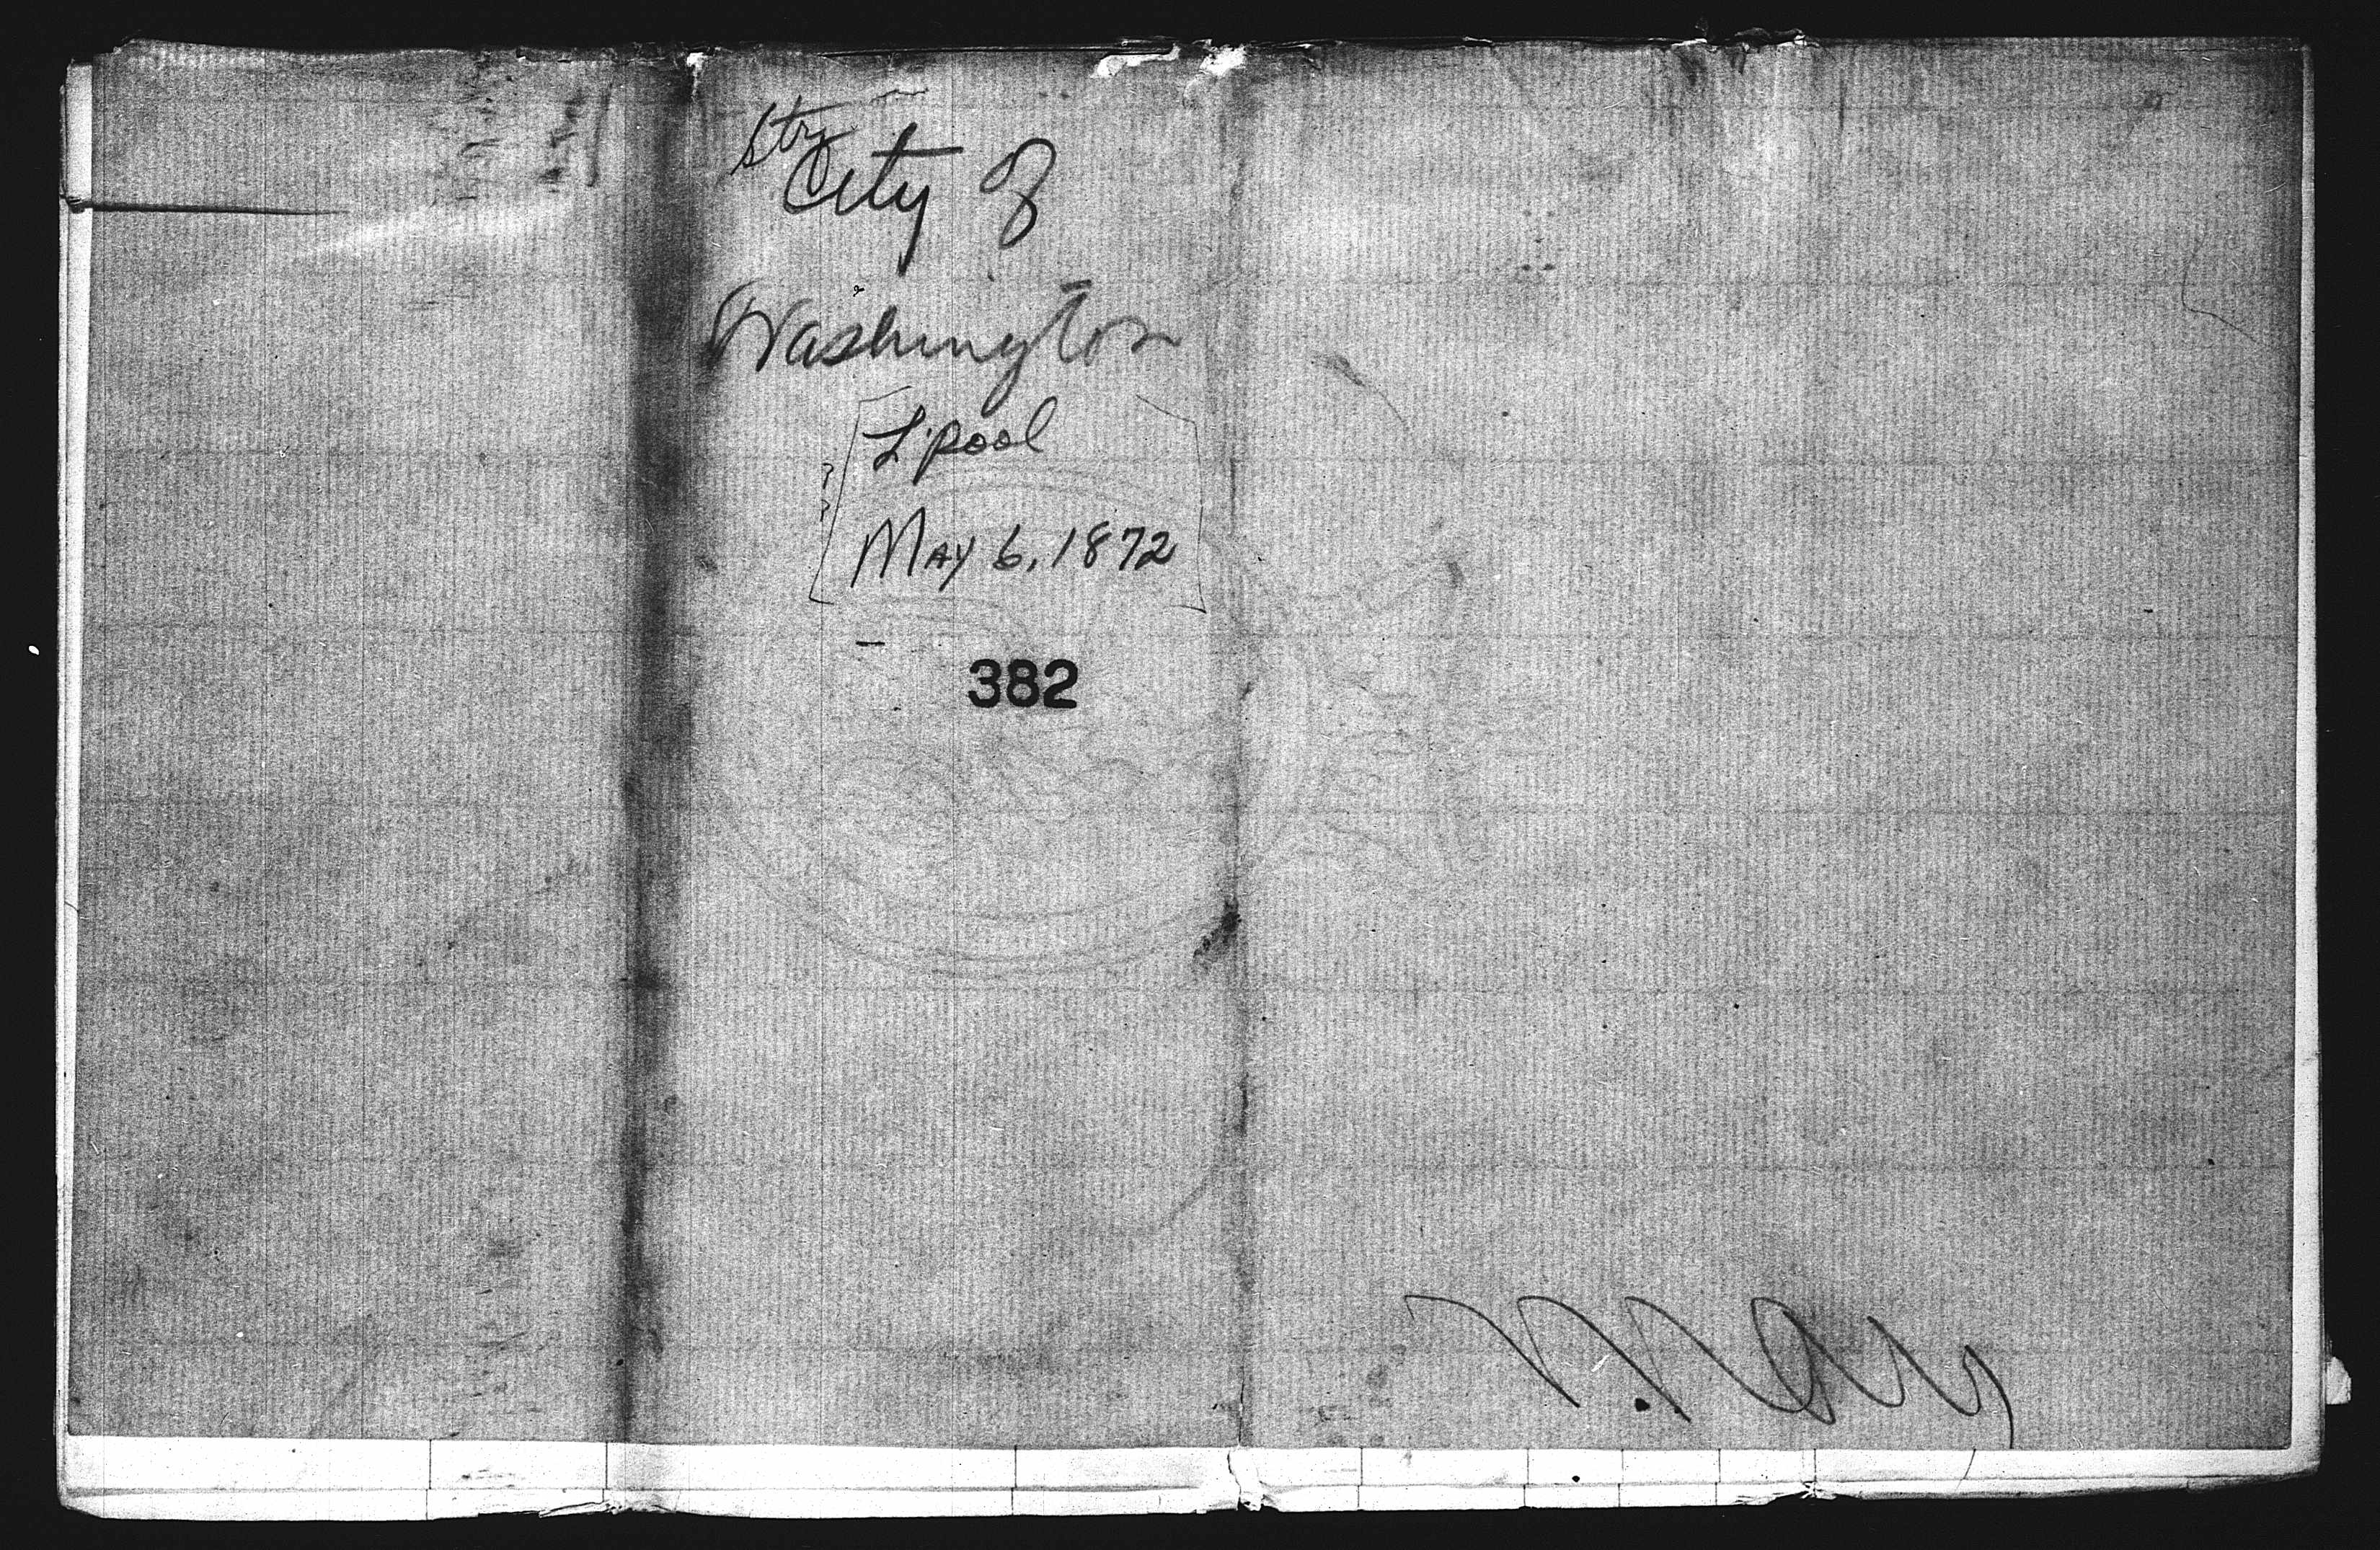 Str
City of
Washington
[L'pool
May 6, 1872]
382